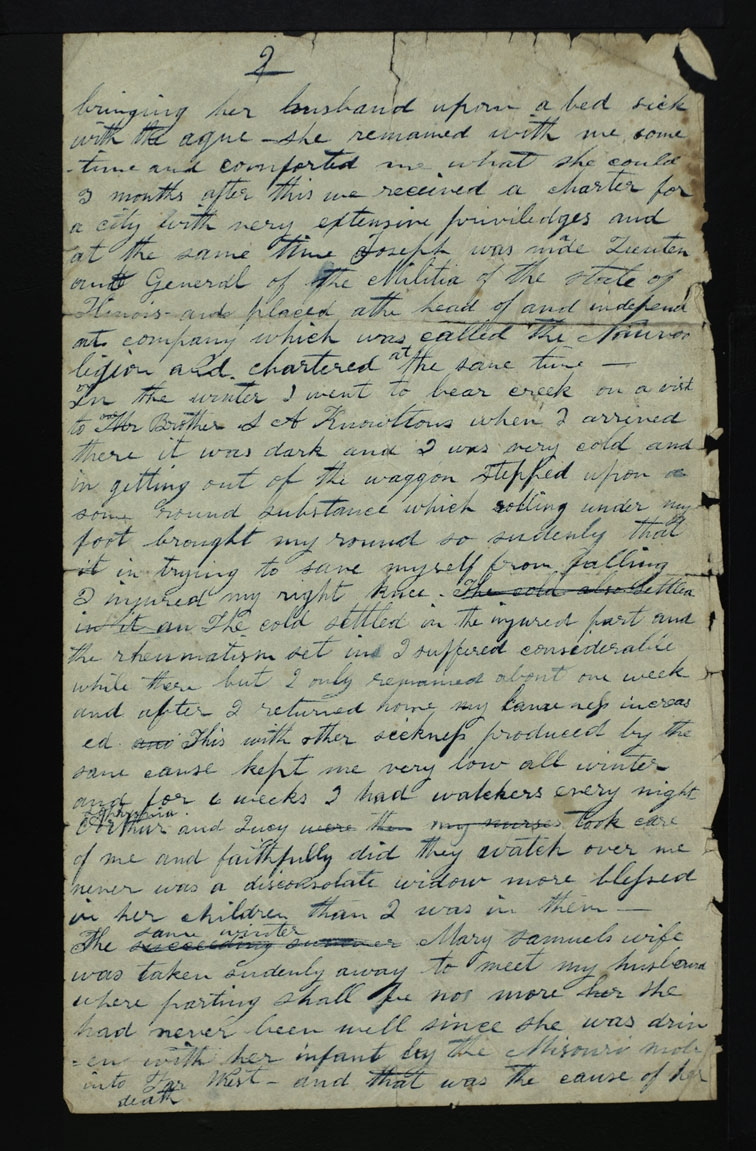 2
bringing her husband upon a bed sick
with the ague - she remained with me some
-time and comforted me what she could
3 months after this we received a charter for
a city with very extensive priviledges and
at the same time Joseph was made Lieuten
ant General of the Militia of the state of
Illinois and placed athe head of and independ
nt company which was called the Nauvoo
legion and chartered at the same time —
In the winter I went to bear creek on a visit
to Brother S A Knowltons when I arrived
there it was dark and I was very cold and
in getting out of the waggon stepped upon a
some round substance which rolling under my
foot brought my round so sudenly that
it in trying to save myself from falling
I injured my right knee. The cold also settled
in it an The cold settled in the injured part and
the rheumatism set in I suffered considerable
while there but I only remained about one week
and after I returned home my lameness increas
ed and This with other sickness produced by the
same cause kept me very low all winter
and for 6 weeks I had watchers every night
Sophronia
Arthur and Lucy were then my nurses took care
of me and faithfully did they watch over me
never was a disconsolate widow more blessed
in her children than I was in them —
same winter
The succeeding summer Mary Samuels wife
was taken sudenly away to meet my husband
where parting shall be no more her she
had never been well since she was driv
-en with her infant by the Misouri mob
into Far West - and that was the cause of her
death